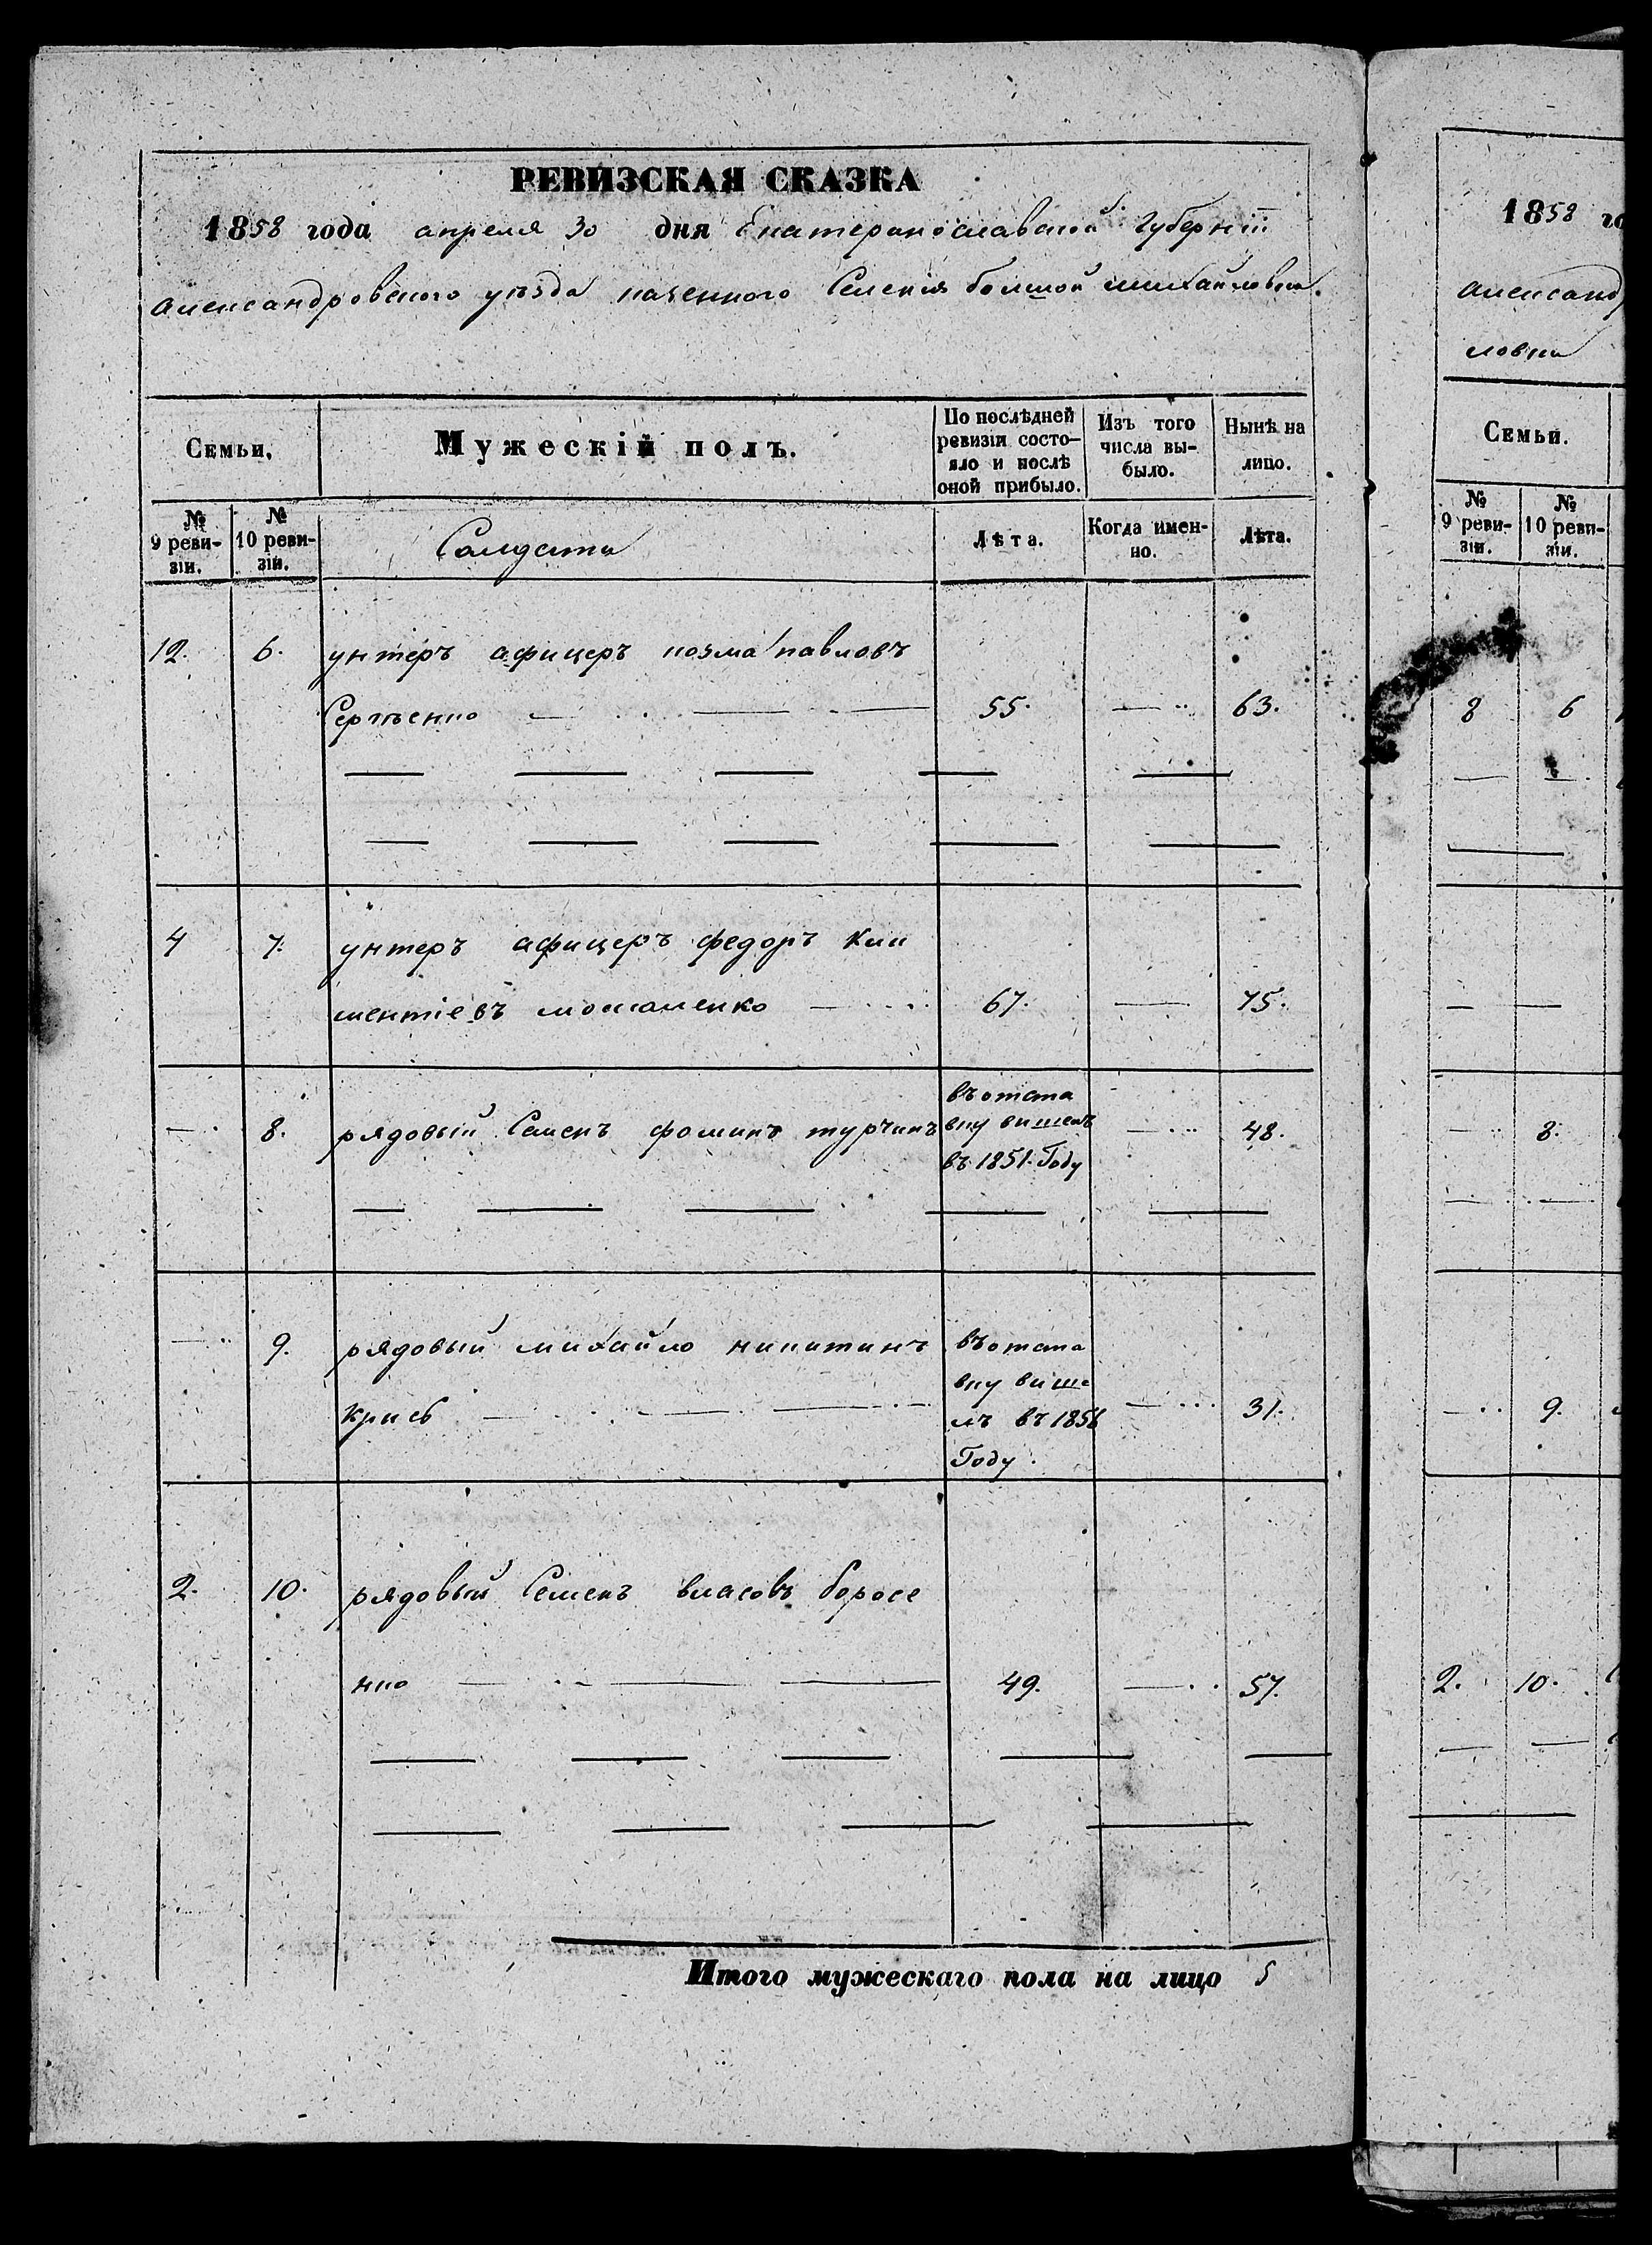 РЕВИЗСКАЯ СКАЗКА
1858 года апреля 30 дня Екатеринославской Губерніи
Александровского уезда казенного Селенія болшой михайловки.
Семьи.
Мужескій полъ.
По послѣдней ревизіи состо-
яло и послѣ
оной прибыло.
Изъ того
числа вы-
было.
Нынѣ на
лицо.
№
9 реви-
зіи.
№
10 реви-
зіи.
Салдати
Лѣта.
Когда имен-
но.
Лѣта.
12. 6. унтеръ афицеръ козма павловъ
Сергѣенко 55. 63.
4 7. унтеръ афицеръ федоръ Кли
ментіевъ 67. 75.
8. рядовый Семенъ фоминъ турчинъ 48.
въ отста
вку вишелъ
въ 1851. Году
9. рядовый михайло никитинъ
31.
въ отста
вку више
лъ въ 1856
Году.
2. 10. рядовый Семенъ власовъ боросе
нко 49. 57.
Итого мужескаго пола на лицо 5
1858 го
Александ
ловки
Семьи.
№
9 реви-
зіи.
№
10 реви-
зіи.
8 6
8.
9.
2. 10.